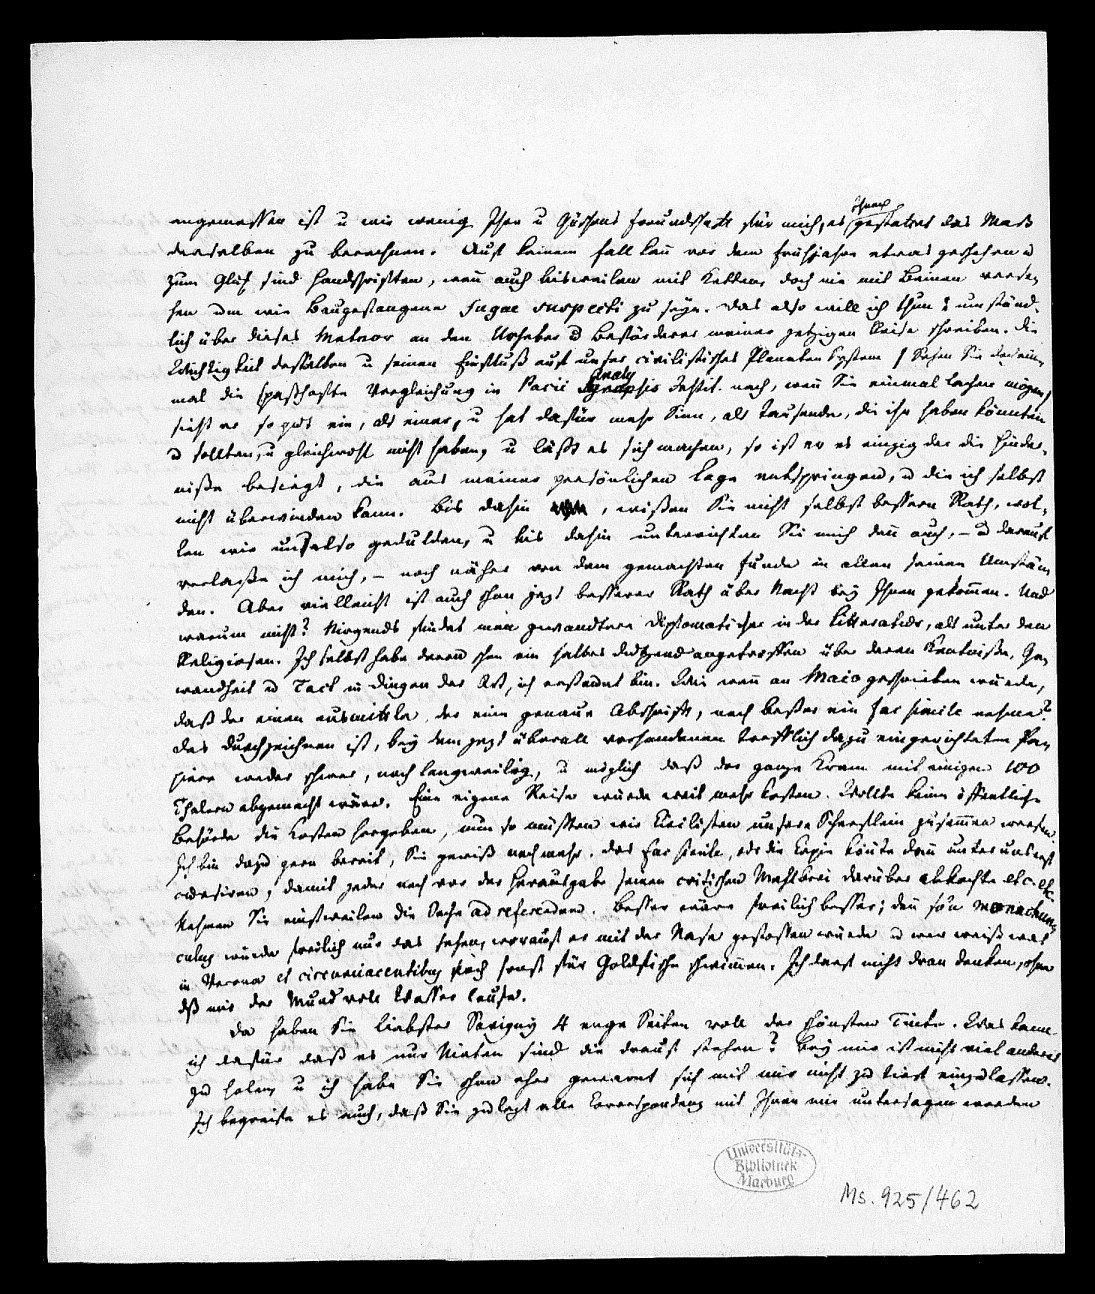 angemessen ist u wie wenig Ihre u Göschens Freundschaft für mich, es Ihnen gestattet das Maß
derselben zu berechnen. Auf keinem Fall kann vor dem Frühjahre etwas geschehen u
zum Glük sind Handschriften, wenn auch bisweilen mit Ketten, doch nie mit Beinen verse-
hen um wie Baugefangene fugae suspecti zu seyn. Das also will ich thun: umständ-
lich über dieses Meteor an den Urheber u Beförderer meiner jetzigen Reise schreiben. Die
Wichtigkeit desselben u seinen Einfluß auf unser civilistisches Planeten System (Sehen Sie doch ein-
mal die spaßhafte Vergleichung in Pacii Analysis Instit. nach, wenn Sie einmal lachen mögen)
sieht er so gut ein, als einer, u hat dafür mehr Sinn, als Tausende, die ihn haben könnten
u sollten, u gleichwohl nicht haben, u läßt es sich machen, so ist er es einzig der die Hinder-
niße besiegt, die aus meiner persönlichen Lage entspringen, u die ich selbst
nicht überwinden kann. Bis dahin , wißen Sie nicht selbst bessern Rath, wol-
len wir uns also gedulden, u bis dahin unterrichten Sie mich denn auch, – u darauf
verlaße ich mich, – noch näher von dem gemachten Funde in allen seinen Umstän-
den. Aber vielleicht ist auch schon jezt besserer Rath über Nacht bey Ihnen gekommen. Und
warum nicht? Nirgends findet man gewandtere Diplomatiker in der Litteratur, als unter den
Religiosen. Ich selbst habe deren schon ein halbes Dutzend angetroffen über deren Kentniße, Ge-
wandheit u Tact in Dingen der Art, ich erstaunt bin. Wie wenn an Maio geschrieben würde,
daß der einen ausmittele, der eine genaue Abschrift, noch beßer ein fac simile nehme?
Das Durchzeichnen ist, bey dem jezt überall vorhandenen trefflich dazu eingerichteten Pa-
piere weder schwer, noch langweilig, u möglich daß der ganze Kram mit einigen 100
Thalern abgemacht wäre. Eine eigene Reise würde weit mehr kosten. Wollte keine öffentliche
Behörde die Kosten hergeben, nun so müßten wir Civilisten unsere Scherflein zusammen werfen.
Ich bin dazu gern bereit, Sie gewiß noch mehr. Das fac simile, oder die Copie könte dann unter uns erst
cursiren, damit jeder noch vor der Herausgabe seinen critischen Mehlbrei darüber abkochte etc. etc.
Nehmen Sie einstweilen die Sache ad referendum. Besser wäre freilich besser; denn so'n monachun-
culus würde freilich nur das sehen, worauf er mit der Nase gestossen würde u wer weiß was
in Verona et circumiacentibus noch sonst für Goldfische schwimmen. Ich darf nicht dran denken, ohne
dß mir der Mund voll Wasser laufe.
Da haben Sie liebster Savigny 4 enge Seiten voll der schönsten Tinte. Was kann
ich dafür daß es nur Nieten sind die drauf stehen? Bey mir ist nicht viel anderes
zu holen, u ich habe Sie schon eher gewarnt sich mit mir nicht zu tief einzulassen.
Ich begreife es auch, daß Sie zulezt alle Correspondenz mit Ihnen mir untersagen werden
Universitäts-
Bibliothek
Marburg
Ms. 925/462